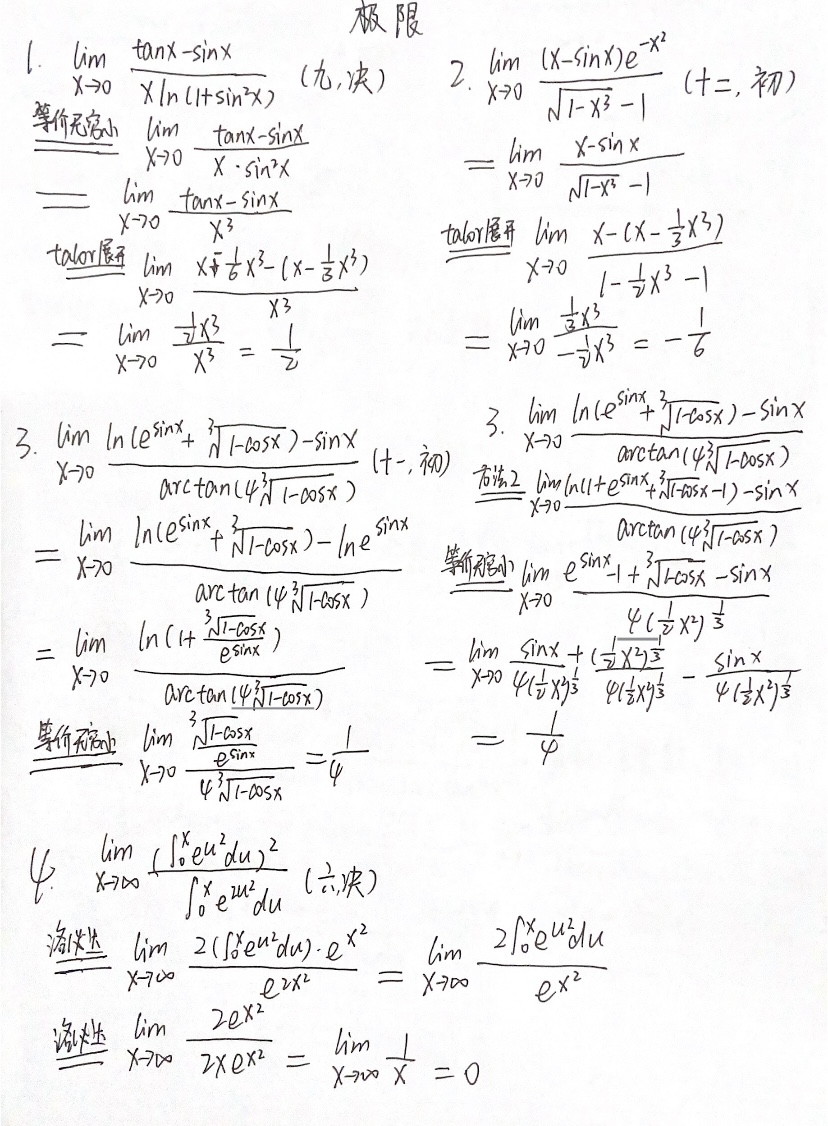 极限
1. lim x→0 (tanx-sinx)/(x ln(1+sin²x)) (九,决)
等价无穷小 lim x→0 (tanx-sinx)/(x·sin²x)
= lim x→0 (tanx-sinx)/x³
talor展开 lim x→0 (x+1/6x³-(x-1/3x³))/x³
= lim x→0 (1/2x³)/x³ = 1/2
2. lim x→0 ((x-sinx)e^(-x²))/(√(1-x³) -1) (十二,初)
= lim x→0 (x-sinx)/(√(1-x³) -1)
talor展开 lim x→0 (x-(x-1/3x³))/(1-1/2x³-1)
= lim x→0 (1/3x³)/(-1/2x³) = -1/6
3. lim x→0 (ln(e^sinx+∛(1-cosx))-sinx)/(arctan(4∛(1-cosx))) (十一,初)
= lim x→0 (ln(e^sinx+∛(1-cosx))-lne^sinx)/(arctan(4∛(1-cosx)))
= lim x→0 ln(1+∛(1-cosx)/e^sinx)/(arctan(4∛(1-cosx)))
等价无穷小 lim x→0 (∛(1-cosx)/e^sinx)/(4∛(1-cosx)) = 1/4
3. lim x→0 (ln(e^sinx+∛(1-cosx))-sinx)/(arctan(4∛(1-cosx)))
方法2 lim x→0 (ln(1+e^sinx+∛(1-cosx)-1)-sinx)/(arctan(4∛(1-cosx)))
等价无穷小 lim x→0 (e^sinx-1+∛(1-cosx)-sinx)/(4(1/2x²)^(1/3))
= lim x→0 sinx/(4(1/2x²)^(1/3)) + (1/2x²)^(1/3)/(4(1/2x²)^(1/3)) - sinx/(4(1/2x²)^(1/3))
= 1/4
4. lim x→∞ (∫₀ˣe^(u²)du)²/(∫₀ˣe^(2u²)du) (六,决)
洛必达 lim x→∞ (2(∫₀ˣe^(u²)du)·e^(x²))/e^(2x²) = lim x→∞ (2∫₀ˣe^(u²)du)/e^(x²)
洛必达 lim x→∞ (2e^(x²))/(2xe^(x²)) = lim x→∞ 1/x = 0